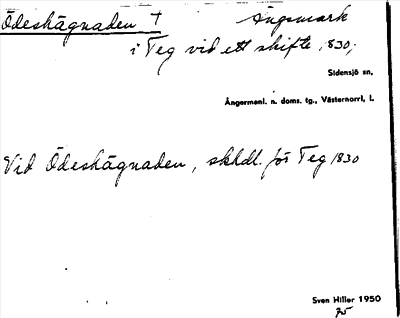 Ödeshägnaden † Ängsmark
i Teg vid ett skifte 1830,
Sidensjö sn,
Ångermanl. n. doms. tg., Västernorrl. l.
Vid Ödeshägnaden, skhdl. för Teg 1830
Sven Hiller 1950